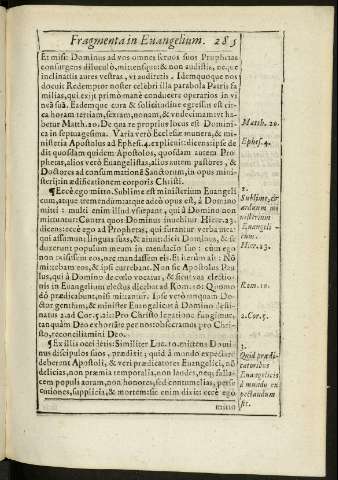 Fragmenta in Euangelium. 285
Et misit Dominus ad vos omnes seruos suos Prophetas
consurgens diluculo, mittensque: & non audistis, neque
inclinastis aures vestras, vt audiretis. Idemque quoque nos
docuit Redemptor noster celebri illa parabola Patris fa
milias, qui exijt primò manè conducere operarios in vi
neā suā. Eademque cura & solicitudine egressus est cir
ca horam tertiam, sextam, nonam, & vndecimam: vt ha
betur Matth. 20. De qua re proprius locus est Domini-
ca in septuagesima. Varia verò Ecclesiæ munera, & mi-
nisteria Apostolus ad Ephes. 4. explicuit: dicens: ipse de
dit quosdam quidem Apostolos, quosdam autem Pro-
phetas, alios verò Euangelistas, alios autem pastores, &
Doctores ad consummationē Sanctorum, in opus minis-
terij: in ædificationem corporis Christi.
¶ Ecce ego mitto. Sublime est ministerium Euangeli
cum, atque tremendum: atque adeò opus est, à Domino
mitti: multi enim illud vsurpant, qui à Domino non
mittuntur: Contra quos Dominus inuehitur Hiere. 23.
dicens: ecce ego ad Prophetas, qui furantur verba mea:
qui assumunt linguas suas, & annuntiāt Dominus, & se
duxerunt populum meum in mendacio suo: cum ego
non misissem eos, nec mandassem eis. Et iterum ait: Nō
mittebam eos, & ipsi currebant. Non sic Apostolus Pau
lus, qui à Domino de cœlo vocatus, & sicut vas electio-
nis in Euangelium electus dicebat ad Rom. 10: Quomo
dò prædicabunt, nisi mittantur. Ipse verò tanquam Doc-
tor gentium, & minister Euangelicus à Domino desti-
natus 2. ad Cor. 5. ait: Pro Christo legatione fungimur,
tanquam Deo exhortāte per nos: obsecramus pro Chri-
sto, reconciliamini Deo.
¶ Ex illis occidetis: Similiter Luc. 10. mittens Domi
nus discipulos suos, prædixit; quid à mundo expectare
deberent Apostoli, & veri prædicatores Euangelici, nō
delicias, non præmia temporalia, non laudes, neque falla-
cem populi auram, non honores, sed contumelias, perse
cutiones, supplicia, & mortem: sic enim dixit: ecce ego
mitto
Matth. 20.
Ephes. 4.
2.
Sublime, &
arduum mi
nisterium
Euangeli-
cum.
Hiere. 23.
Rom. 10.
2. Cor. 5.
3.
Quid prædi-
catoribus
Euangelicis
à mundo ex
pectandum
sit.